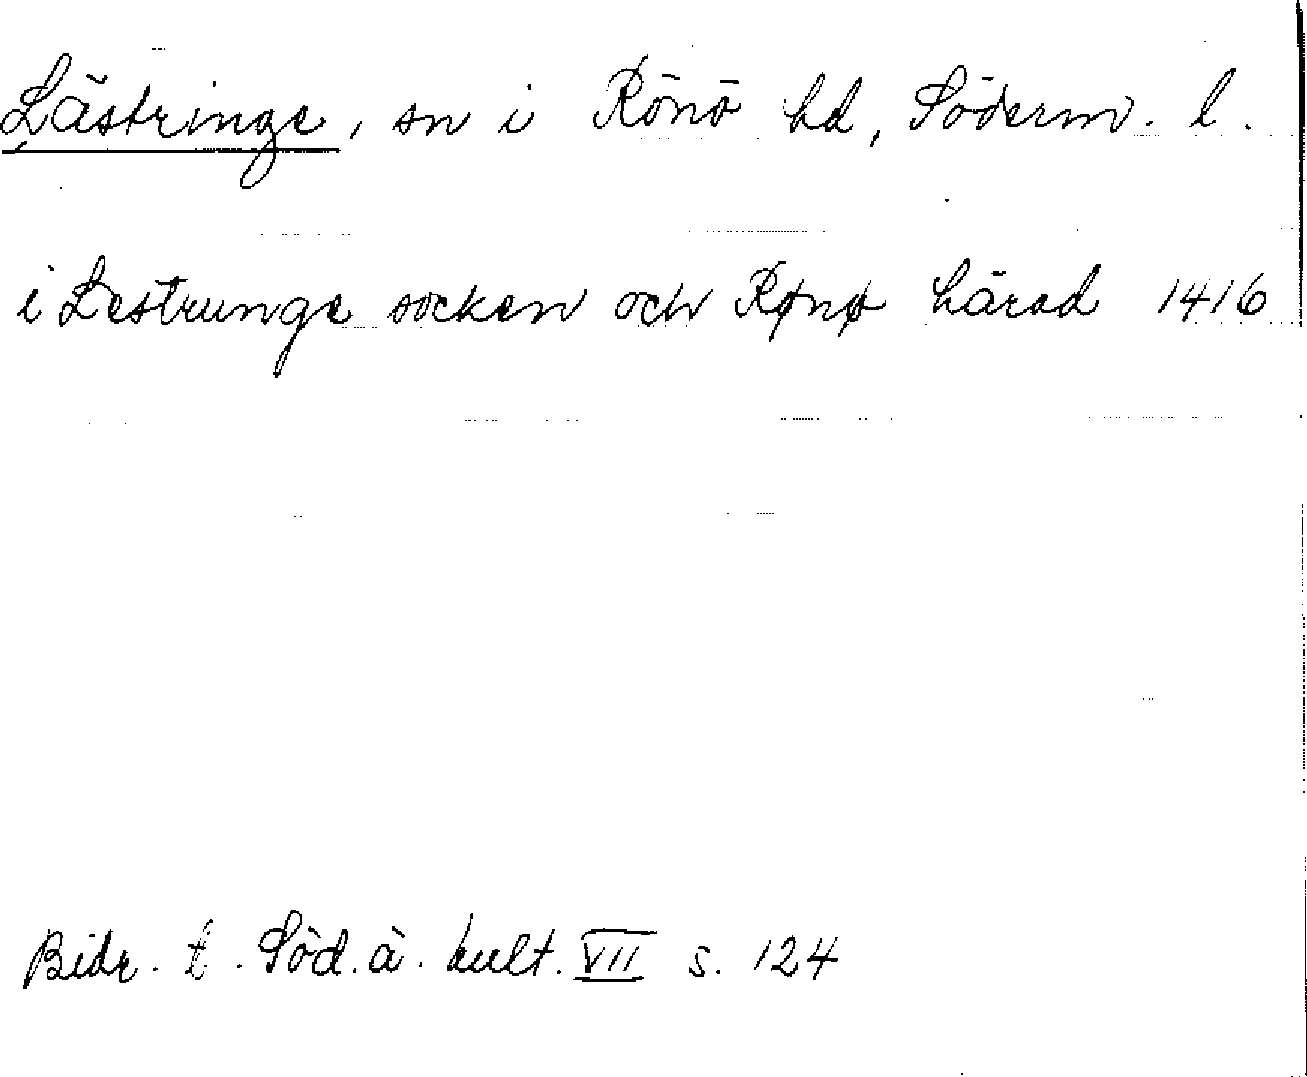 Lästringe, sn i Rönö hd, Söderm. l.
i Lestrunge socken och Rønø härad 1416
Bidr. t. Söd. ä. kult. VII s. 124